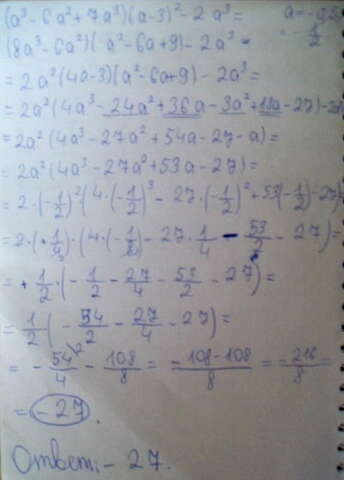 (a³ - 6a² + 7a³)(a-3)² - 2a³ = a = -0,5 = -1/2
(8a³ - 6a²)(a² - 6a + 9) - 2a³ =
= 2a²(4a-3)(a² - 6a + 9) - 2a³ =
= 2a²(4a³ - 24a² + 36a - 3a² + 18a - 27) - 2a³
= 2a²(4a³ - 27a² + 54a - 27 - a) =
= 2a²(4a³ - 27a² + 53a - 27) =
= 2·(-1/2)²(4·(-1/2)³ - 27·(-1/2)² + 53(-1/2) - 27) =
= 2·(+1/4)·(4·(-1/8) - 27·1/4 - 53/2 - 27) =
= +1/2·(-1/2 - 27/4 - 53/2 - 27) =
= 1/2(-54/2 - 27/4 - 27) =
= -54/4 - 108/8 = -108-108/8 = -216/8 =
= -27.
Ответ: - 27.